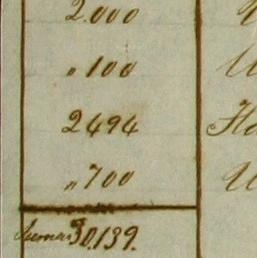 2.000
" 100
2494
" 700
Suma 30.139.